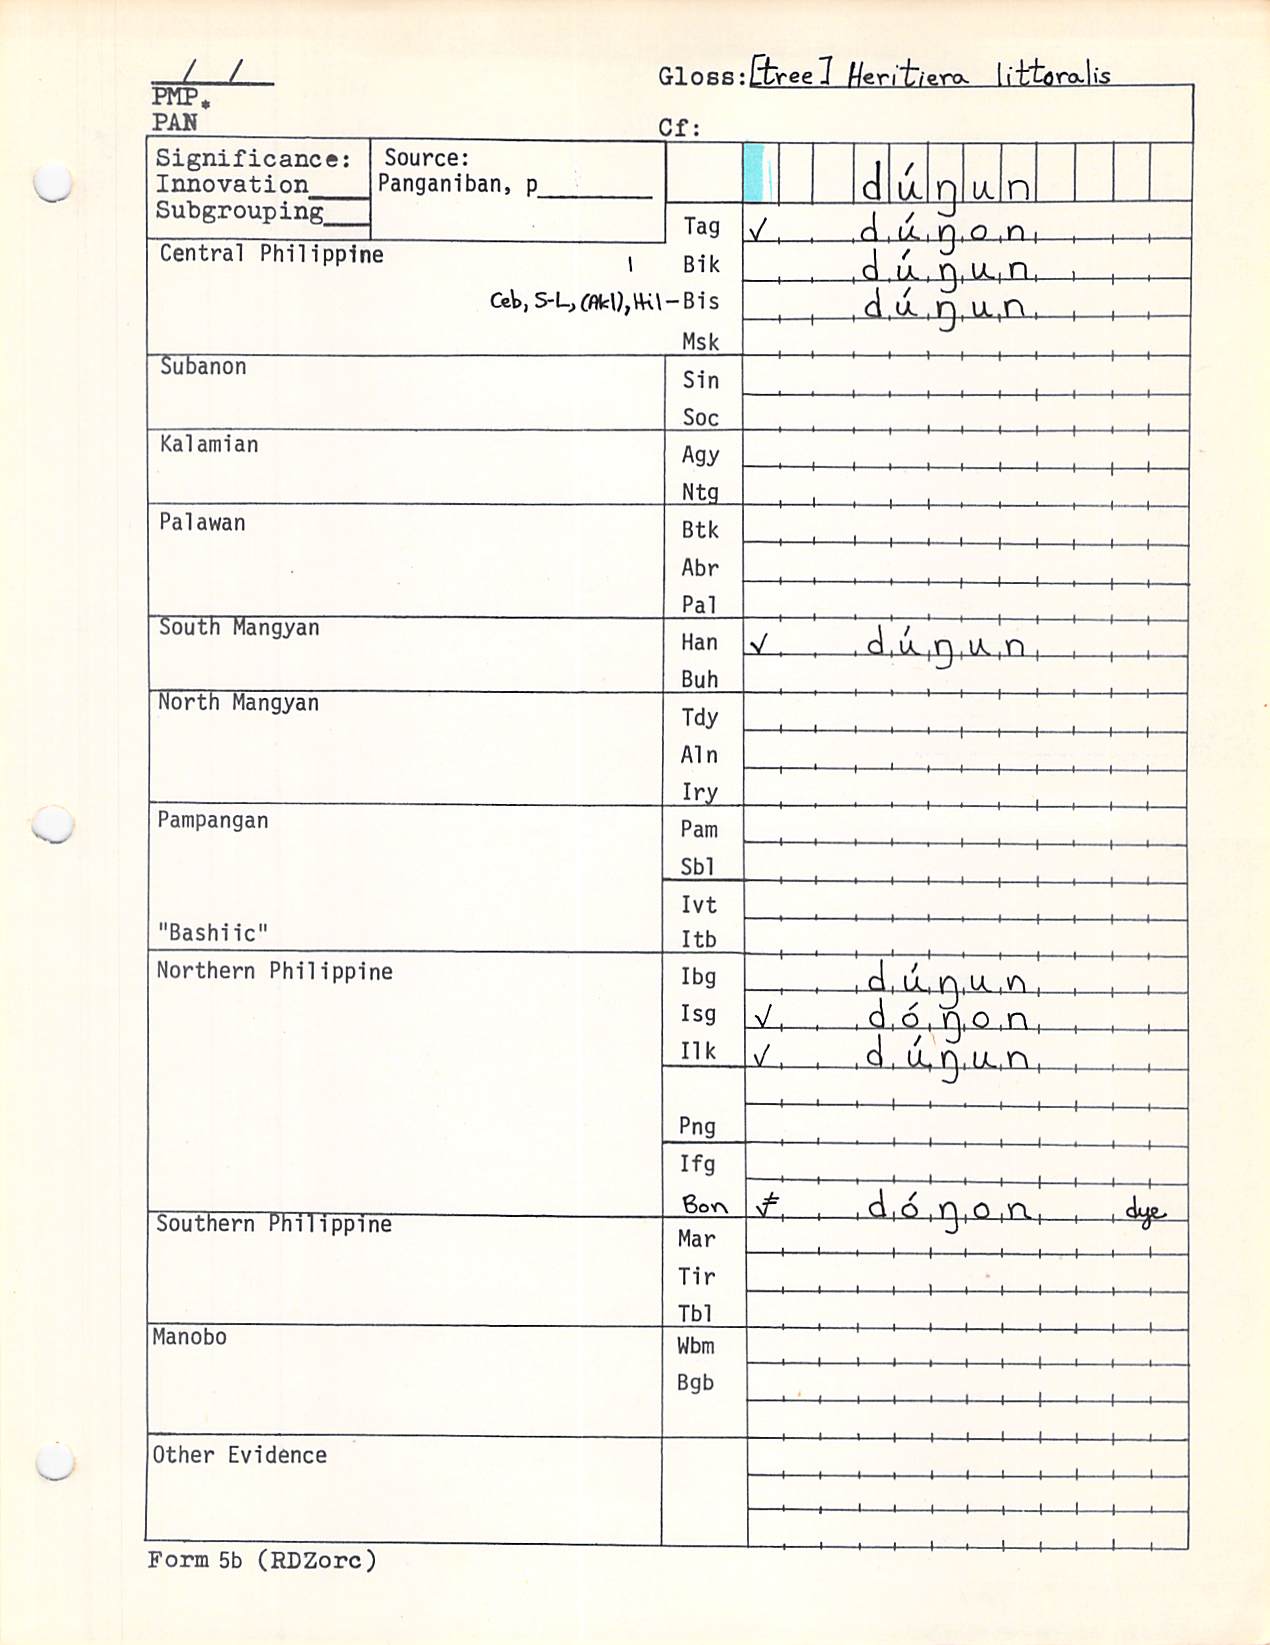 / /
PMP*
PAN
Gloss: [tree] Heritiera littoralis
Cf:
Significance:
Innovation____
Subgrouping___
Source:
Panganiban, p________
dúŋun
Tag ✓ dúŋon
Central Philippine
Bik dúŋun
Ceb, S-L, (Akl), Hil-Bis dúŋun
Msk
Subanon
Sin
Soc
Kalamian
Agy
Ntg
Palawan
Btk
Abr
Pal
South Mangyan
Han ✓ dúŋun
Buh
North Mangyan
Tdy
Aln
Iry
Pampangan
Pam
Sbl
Ivt
"Bashiic"
Itb
Northern Philippine
Ibg dúŋun
Isg ✓ dóŋon
Ilk ✓ dúŋun
Png
Ifg
Bon ≠ dóŋon dye
Southern Philippine
Mar
Tir
Tbl
Manobo
Wbm
Bgb
Other Evidence
Form 5b (RDZorc)